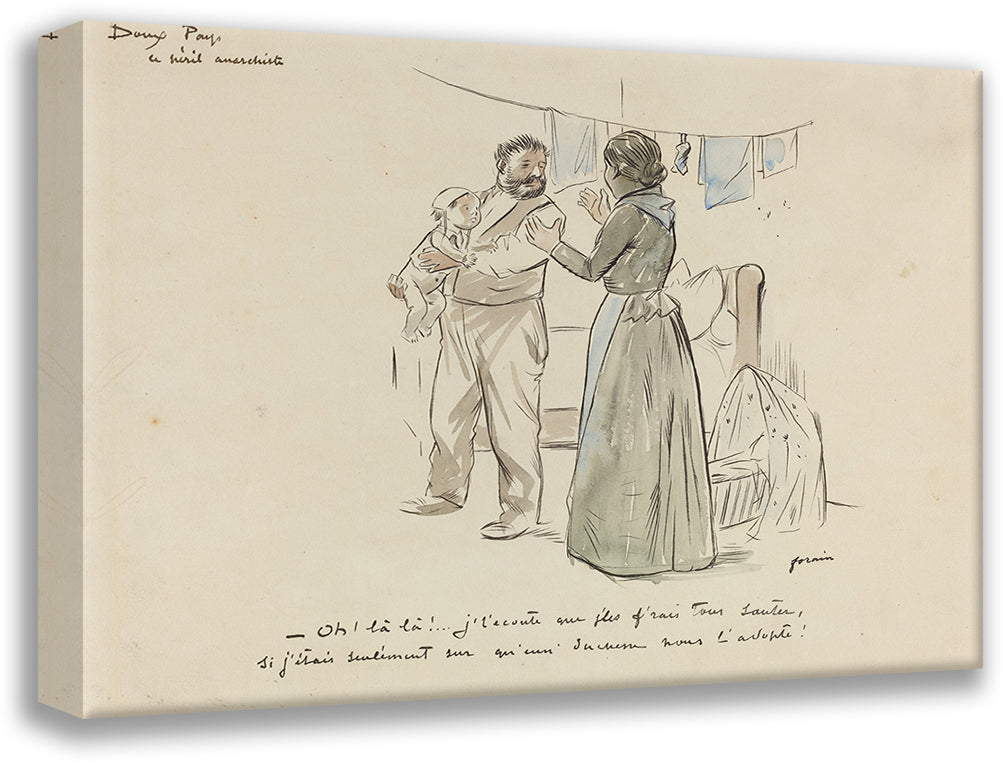 Doux Pays
le péril anarchiste
forain
— Oh! là là!... j't'écoute que j'les f'rais tous sauter,
si j'étais seulement sur qu'eun' duchesse nous l'adopte!